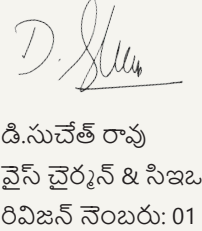 డి.సుచేత్ రావు
వైస్ ఛైర్మన్ & సిఇఒ
రివిజన్ నెంబరు: 01